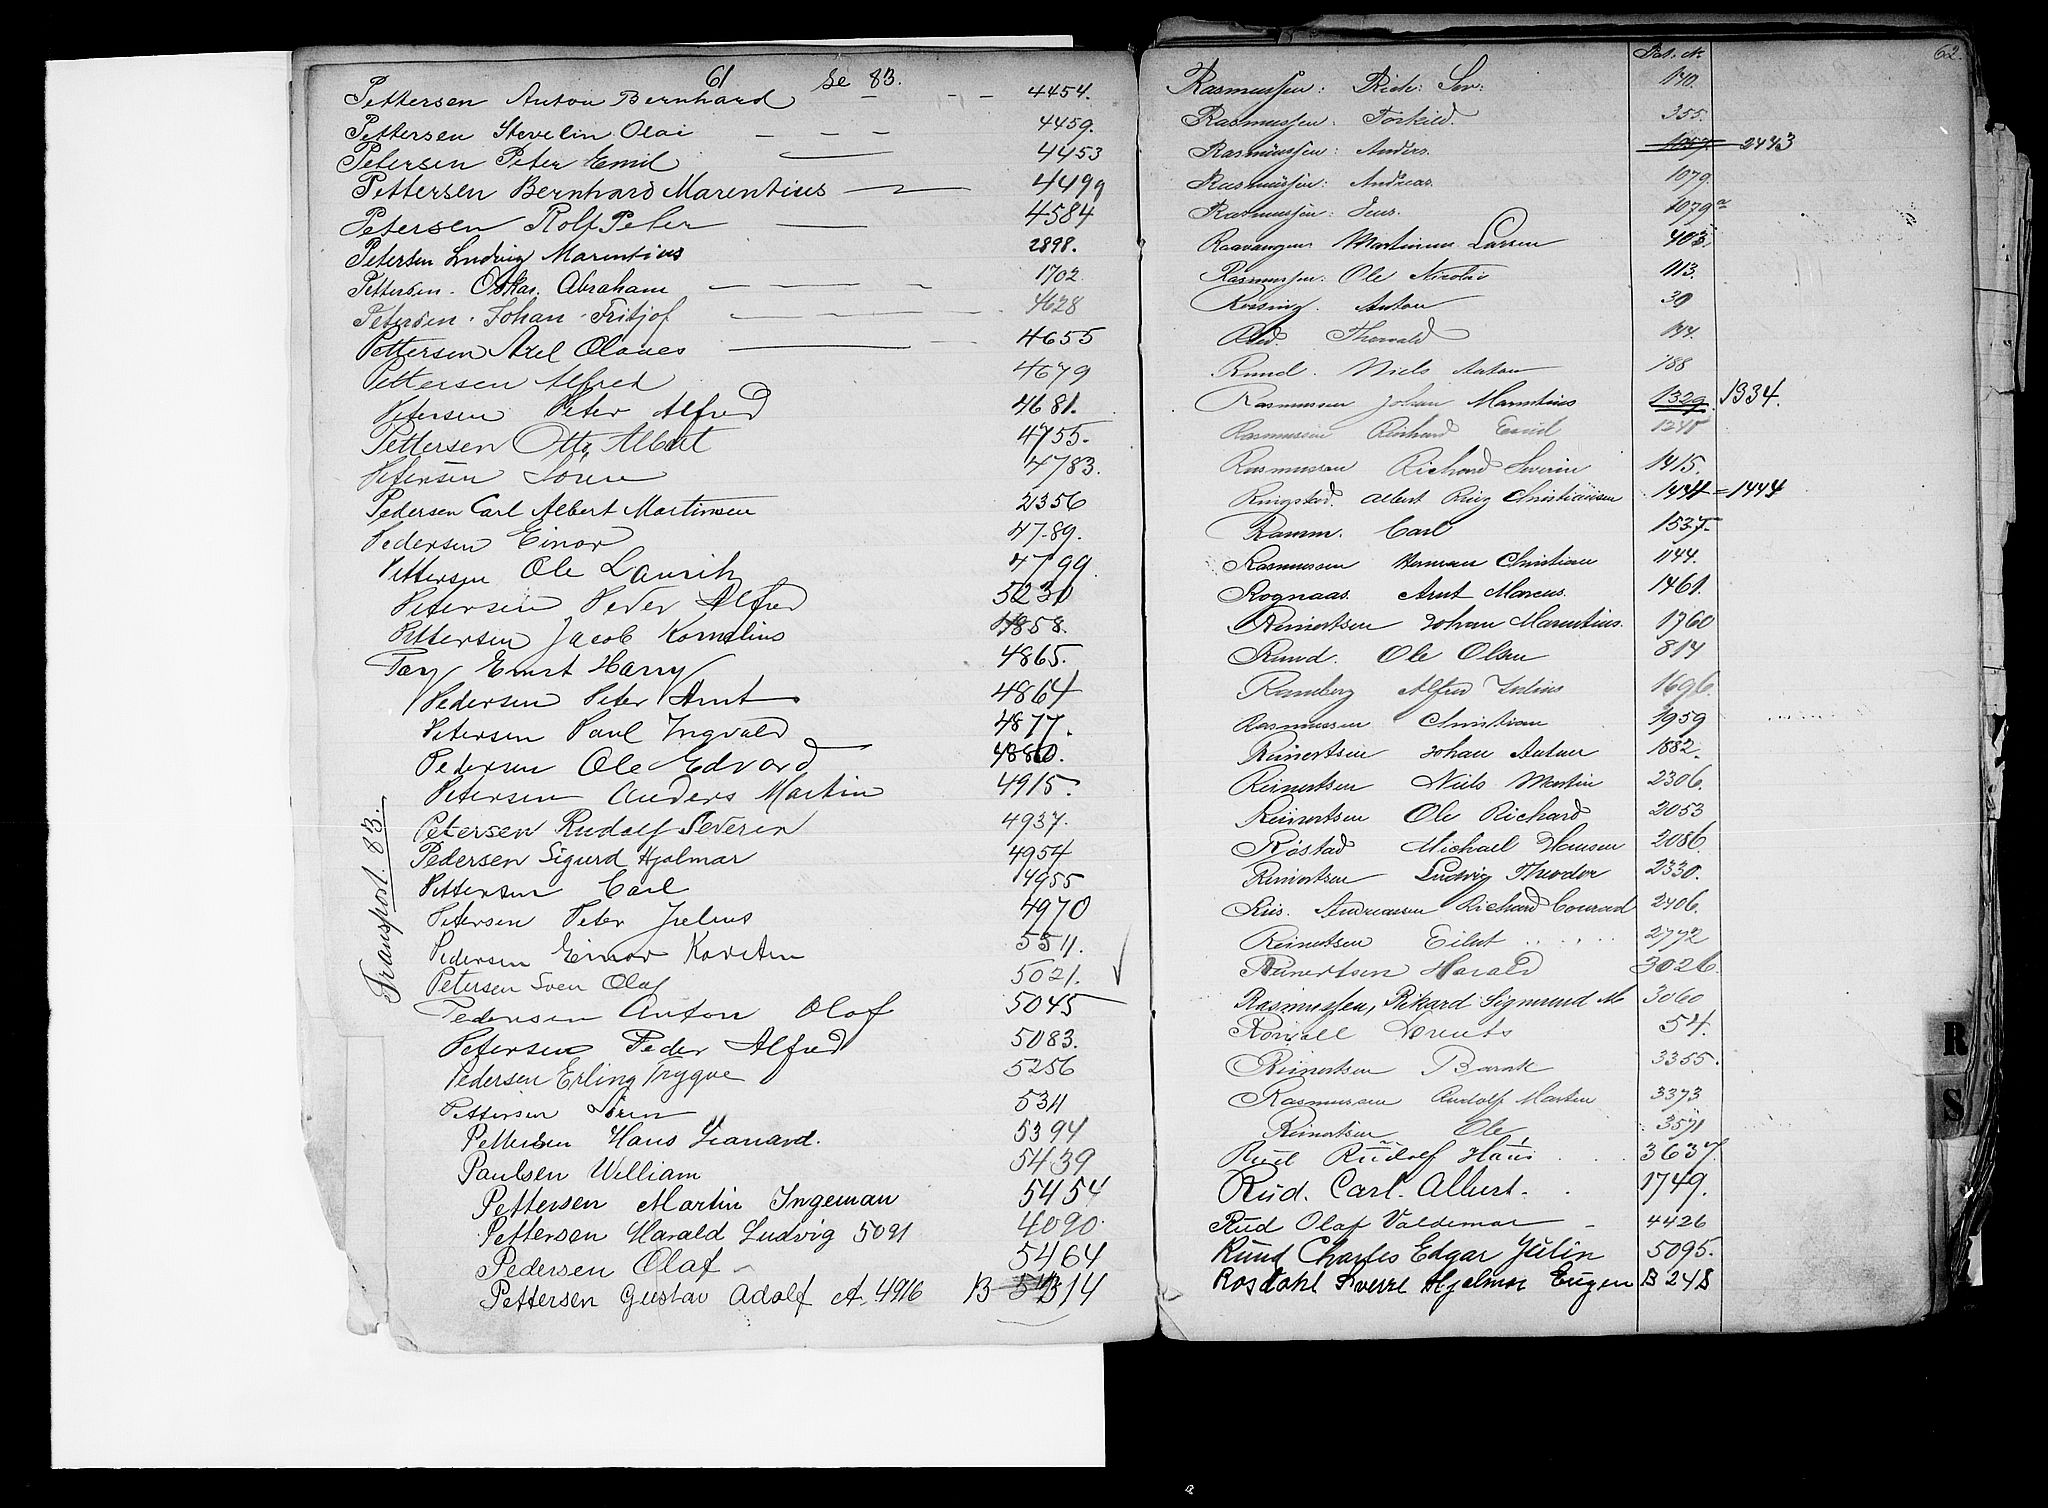 61 Se 83.
Pettersen Anton Bernhard — — — 4454.
Pettersen Stevelin Olai — — — 4459.
Petersen Peter Emil — 4453
Pettersen Bernhard Marentius — 4499
Petersen Rolf Peter — 4584
Petersen Ludvig Marentius 2898.
Pettersen. Oskar. Abraham — — — — 1702
Petersen. Johan. Fritjof — — — 4628
Pettersen Axel Olaues — 4655
Pettersen Alfred 4679
Petersen Peter Alfred 4681.
Pettersen Otto, Albert 4755.
Petersen Sören 4783.
Pedersen Carl Albert Martinsen 2356
Pedersen Einar 4789.
Pettersen Ole Laurik 4799
Petersen Peder Alfred 5230
Pettersen Jacob Kornelius 4858.
Pay Ernst Harry 4865.
Pedersen Peter Arnt 4864
Petersen Paul Ingvald 4877.
Pedersen Ole Edvard 4880.
Petersen Anders Martin 4915.
Petersen Rudolf Severin 4937.
Pedersen Sigurd Hjalmar 4954
Pettersen Carl 4955
Petersen Peter Julius 4970
Pedersen Einar Karsten 5511.
Petersen Sven Olaf 5021.
Pedersen Anton Olaf 5045
Petersen Peder Alfred 5083.
Pedersen Erling Trygve 5256
Pettersen Sören 5311
Pettersen Hans Leonard. 5394
Paulsen William 5439
Pettersen Martin Ingeman 5454
Pettersen Harald Ludvig 5091 4090.
Pedersen Olaf 5464
Pettersen Gustav Adolf A. 4916 B 314
Transport. 83.
62.
Pat. N.
Rasmussen: Rich: Sev: 170.
Rasmussen: Torkild. 355.
Rasmussen: Anders. 1057. 2443
Rasmussen: Andreas. 1079.
Rasmussen: Jens. 1079a
Raavangen Martinus Larsen 403.
Rasmussen: Ole Nicolai 1113.
Reising. Anton 30
Rød. Thorvald 144.
Rund. Niels Anton 188
Rasmussen Johan Marentius 1329. 1334.
Rasmussen Richard Emil
Rasmussen Richard Severin 1415.
Ringstad. Albert Ring Christiansen 1444 = 1444
Ramm. Carl 1537.
Rasmussen Herman Christian 1144.
Rognaas. Arnt Marcus. 1461.
Reinertsen Johan Marentius. 1760
Rund. Ole Olsen 814
Ramberg Alfred Julius 1696.
Rasmussen Christian 1959
Reinertsen Johan Antoni 1882.
Reinertsen Niels Martin 2306.
Reinertsen Ole Richard 2053
Røstad Michael Hansen 2086.
Reinertsen Ludvig Theodor 2330.
Riis. Andreasen Richard Conrad 2406.
Reinertsen Eilert . . . . . 2772
Reinertsen Harald 3026.
Rasmussen, Rikard Sigmund M 3060
54.
Reinertsen Barak 3355.
Rasmussen Rudolf Martin 3373
Reinertsen Ole 3571
Rud Rudolf Hans . . 3637.
Rud. Carl. Albert. . 1749.
Rud Olaf Valdemar — 4426
Rund Charles Edgar Julin 5095.
Rosdahl Sverre Hjalmar Eugen B 248
R
S